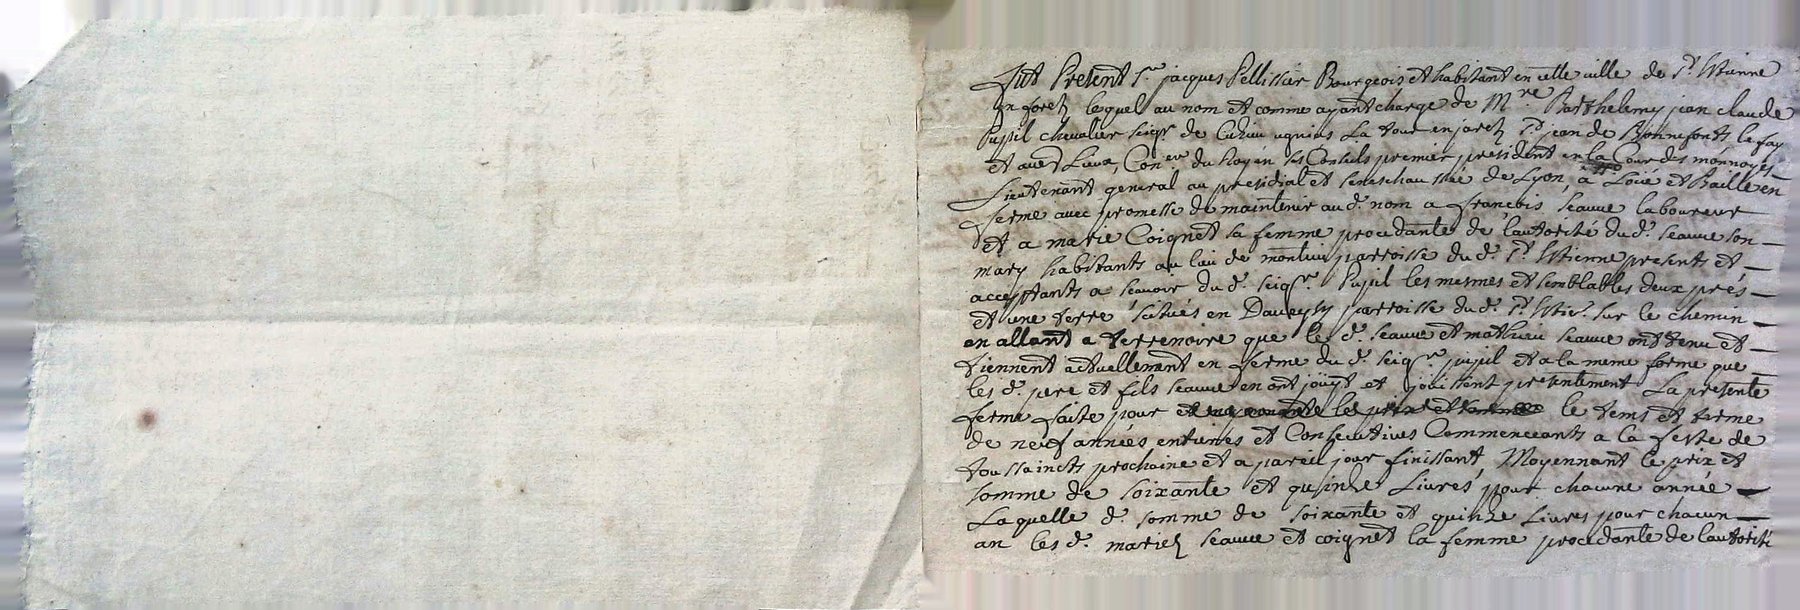 Fut Present Sr jacques Pellissier Bourgeois et habitant en cette ville de St Etienne
en forest lequel au nom et comme ayant charge de Mre Barthelemy jean claude
Pupil chevalier seigr de vignias La tour en jarest St jean de Bonnefonts le fay
et autres Lieux, Coner du Roy en ses Conseils premier president en la Cour des monnoyes
Lieutenant general au presidial et seneschaussée de Lyon, a Loüé et Baillé en
ferme avec promesse de maintenir au d. nom a françois seauue laboureur
et a marie Coignet sa femme procedante de l'autorité du d. seauue son
mary habitants au lieu de parroisse du d. St Etienne presents et
acceptants a scauoir du d. seigr. Pupil les mesmes et semblables deux prés
et une terre situés en Daveysy parroisse du d. St Etie. sur le chemin
en allant a terrenoire que les d. seauue et mathieu seauue ont tenu et
tiennent actuellement en ferme du d. seigr. pupil et a la meme forme que
les d. pere et fils seauue en ont joüyt et joüissent presentement La presente
ferme faite pour le tems et terme
de neuf années entieres et Consecutives Commenceants a la feste de
toussaincts prochaine et a pareil jour finissant, Moyennant le prix et
somme de soixante et quinze Livres, pour chacune année
Laquelle d. somme de soixante et quinze Livres pour chacun
an les d. mariez seauue et coignet sa femme procedante de l'autorité